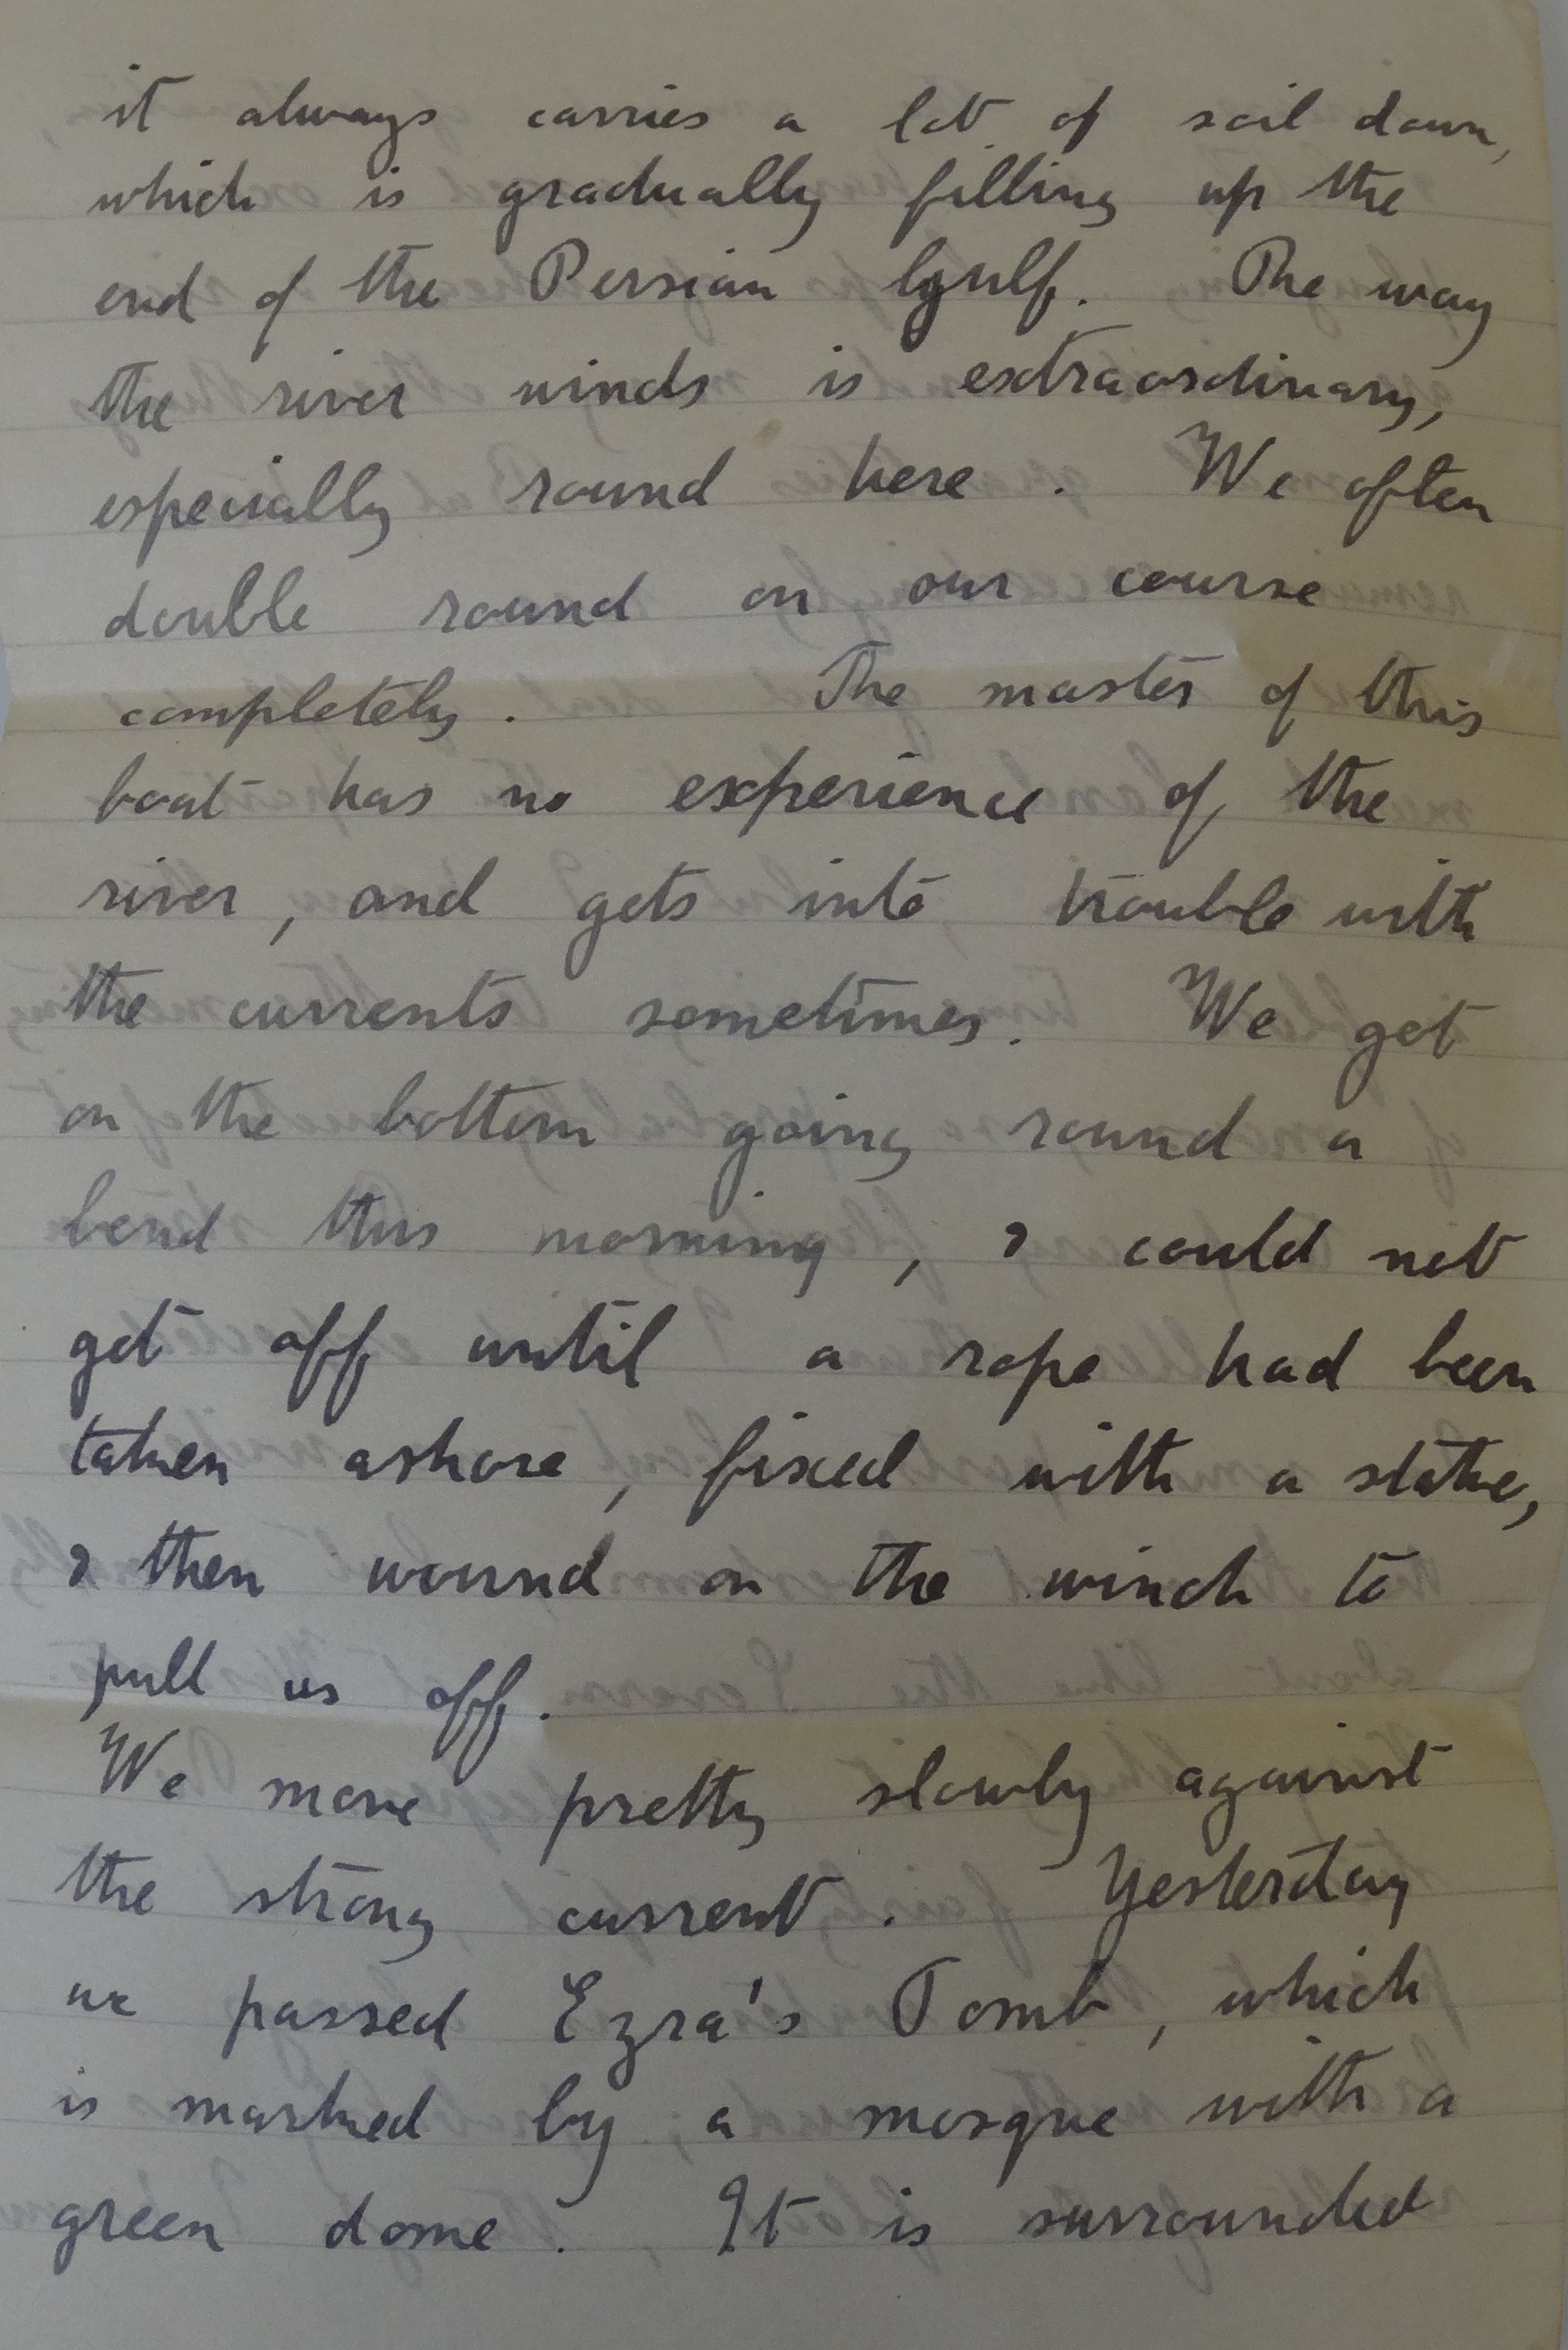 it always carries a lot of soil down,
which is gradually filling up the
end of the Persian Gulf. The way
the river winds is extraordinary,
especially round here. We often
double round on our course
completely. The master of this
boat has no experience of the
river, and gets into trouble with
the currents sometimes. We get
on the bottom going round a
bend this morning, & could not
get off until a rope had been
taken ashore, fixed with a stake,
& then wound on the winch to
pull us off.
We move pretty slowly against
the strong current. Yesterday
we passed Ezra's Tomb, which
is marked by a mosque with a
green dome. It is surrounded